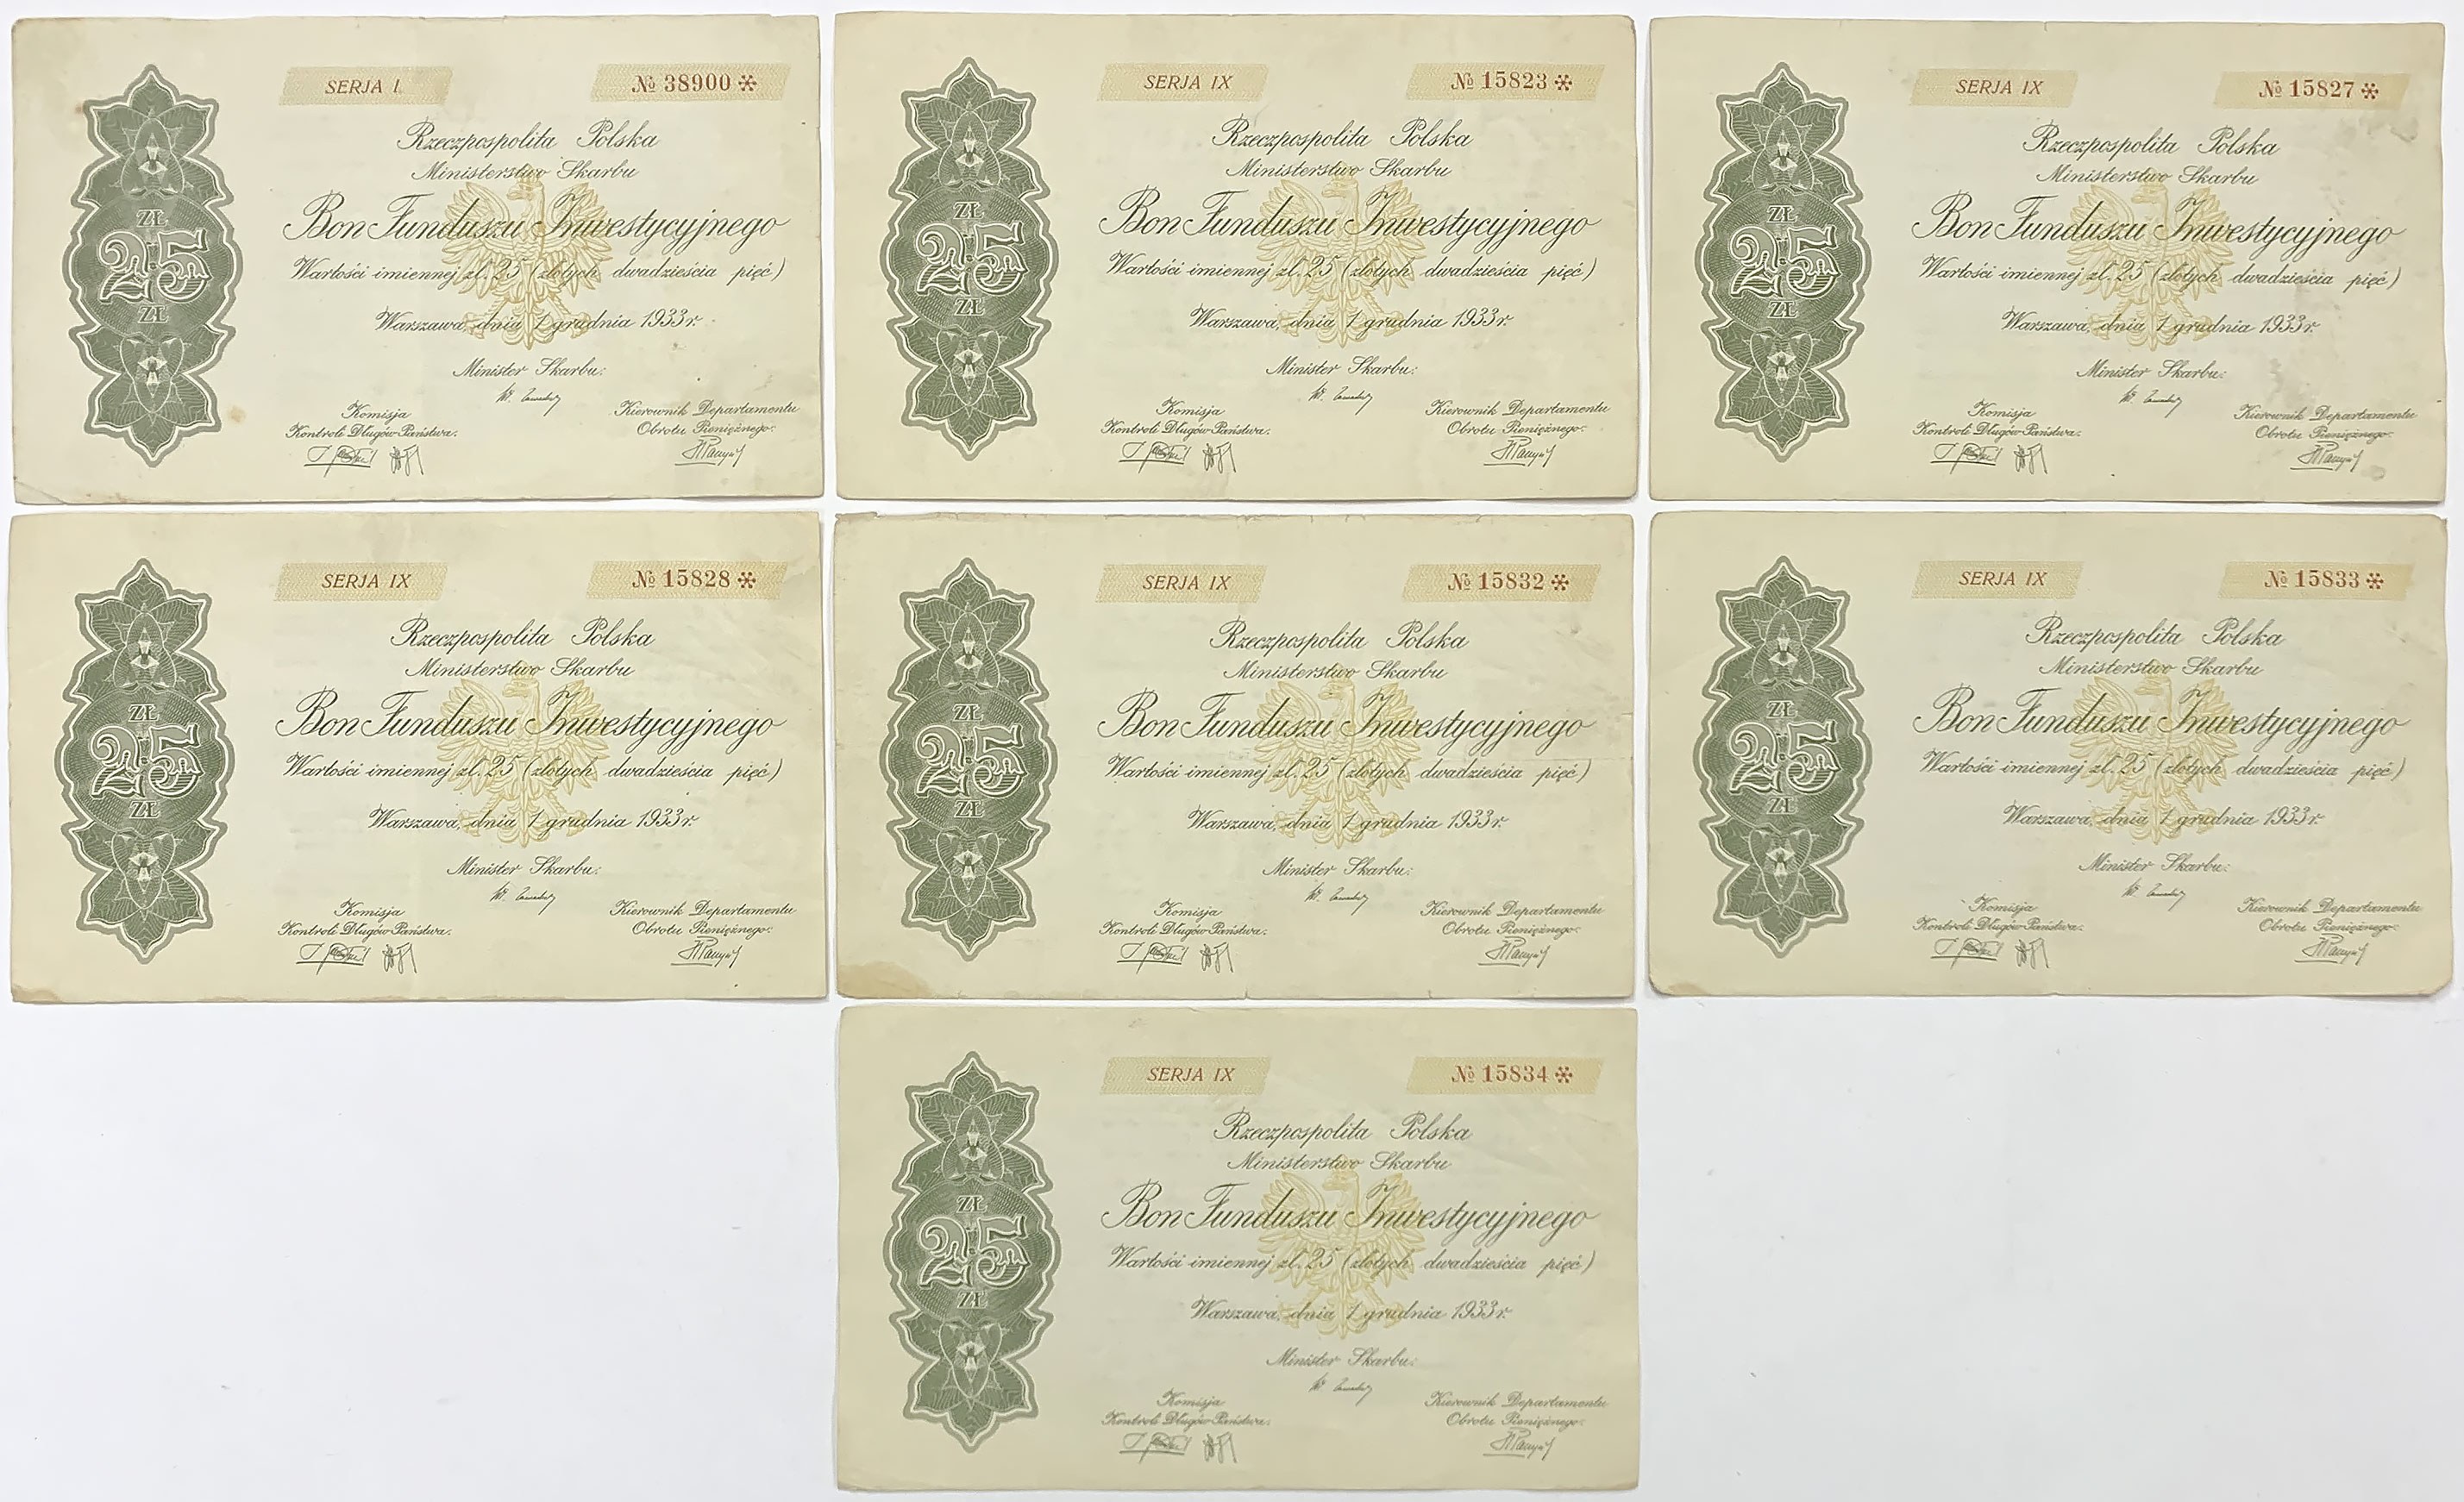 SERJA I.
№ 38900 *
Rzeczpospolita Polska
Ministerstwo Skarbu
Bon Funduszu Inwestycyjnego
Wartości imiennej zł. 25 (złotych dwadzieścia pięć)
Warszawa, dnia 1 grudnia 1933 r.
Minister Skarbu:
Komisja
Kontroli Długów Państwa:
Kierownik Departamentu
Obrotu Pieniężnego:
ZŁ
25
ZŁ
SERJA IX
№ 15823 *
Rzeczpospolita Polska
Ministerstwo Skarbu
Bon Funduszu Inwestycyjnego
Wartości imiennej zł. 25 (złotych dwadzieścia pięć)
Warszawa, dnia 1 grudnia 1933 r.
Minister Skarbu:
Komisja
Kontroli Długów Państwa:
Kierownik Departamentu
Obrotu Pieniężnego:
ZŁ
25
ZŁ
SERJA IX
№ 15827 *
Rzeczpospolita Polska
Ministerstwo Skarbu
Bon Funduszu Inwestycyjnego
Wartości imiennej zł. 25 (złotych dwadzieścia pięć)
Warszawa, dnia 1 grudnia 1933 r.
Minister Skarbu:
Komisja
Kontroli Długów Państwa:
Kierownik Departamentu
Obrotu Pieniężnego:
ZŁ
25
ZŁ
SERJA IX
№ 15828 *
Rzeczpospolita Polska
Ministerstwo Skarbu
Bon Funduszu Inwestycyjnego
Wartości imiennej zł. 25 (złotych dwadzieścia pięć)
Warszawa, dnia 1 grudnia 1933 r.
Minister Skarbu:
Komisja
Kontroli Długów Państwa:
Kierownik Departamentu
Obrotu Pieniężnego:
ZŁ
25
ZŁ
SERJA IX
№ 15832 *
Rzeczpospolita Polska
Ministerstwo Skarbu
Bon Funduszu Inwestycyjnego
Wartości imiennej zł. 25 (złotych dwadzieścia pięć)
Warszawa, dnia 1 grudnia 1933 r.
Minister Skarbu:
Komisja
Kontroli Długów Państwa:
Kierownik Departamentu
Obrotu Pieniężnego:
ZŁ
25
ZŁ
SERJA IX
№ 15833 *
Rzeczpospolita Polska
Ministerstwo Skarbu
Bon Funduszu Inwestycyjnego
Wartości imiennej zł. 25 (złotych dwadzieścia pięć)
Warszawa, dnia 1 grudnia 1933 r.
Minister Skarbu:
Komisja
Kontroli Długów Państwa:
Kierownik Departamentu
Obrotu Pieniężnego:
ZŁ
25
ZŁ
SERJA IX
№ 15834 *
Rzeczpospolita Polska
Ministerstwo Skarbu
Bon Funduszu Inwestycyjnego
Wartości imiennej zł. 25 (złotych dwadzieścia pięć)
Warszawa, dnia 1 grudnia 1933 r.
Minister Skarbu:
Komisja
Kontroli Długów Państwa:
Kierownik Departamentu
Obrotu Pieniężnego:
ZŁ
25
ZŁ